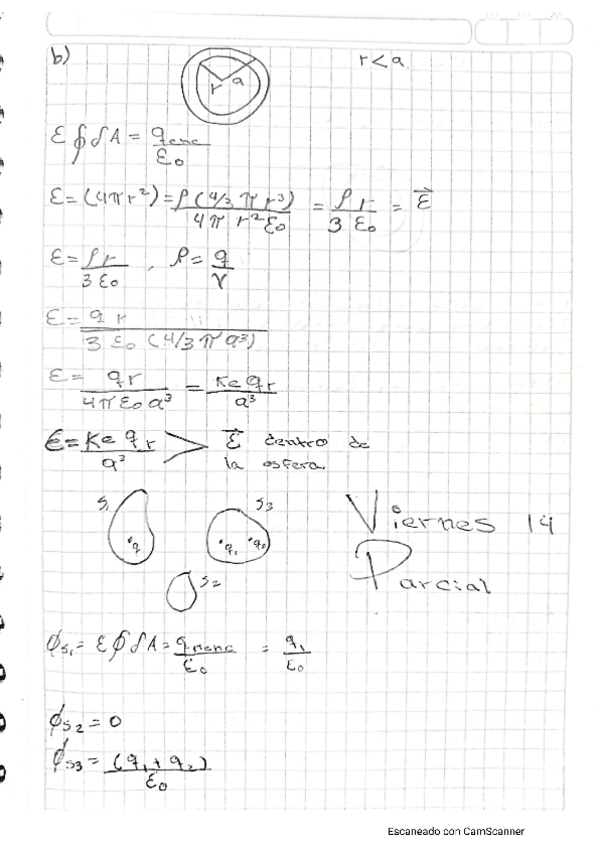 b) r<a
r a
ε ∮ dA = qenc / ε₀
ε = (4πr²) = ρ(4/3 π r³) / 4π r² ε₀ = ρ r / 3 ε₀ = ε⃗
ε = ρ r / 3 ε₀ , ρ = q / V
ε = q r / 3 ε₀ (4/3 π a³)
ε = q r / 4π ε₀ a³ = Ke q r / a³
ε = Ke q r / a³ > ε⃗ dentro de
la esfera
S₁ S₃
.q .q₁ .q₂
S₂
Viernes 14
Parcial
ϕs₁ = ε ∮ dA = qnenc / ε₀ = q₁ / ε₀
ϕs₂ = 0
ϕs₃ = (q₁ + q₂) / ε₀
Escaneado con CamScanner